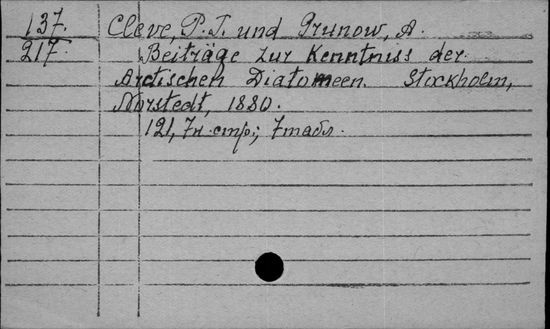 137. Cleve, P. T. und Grunow, A.
217. Beiträge zur Kenntniss der
Arctischen Diatomeen. Stockholm,
Norstedt, 1880.
121, 7н. стр.; 7 табл.